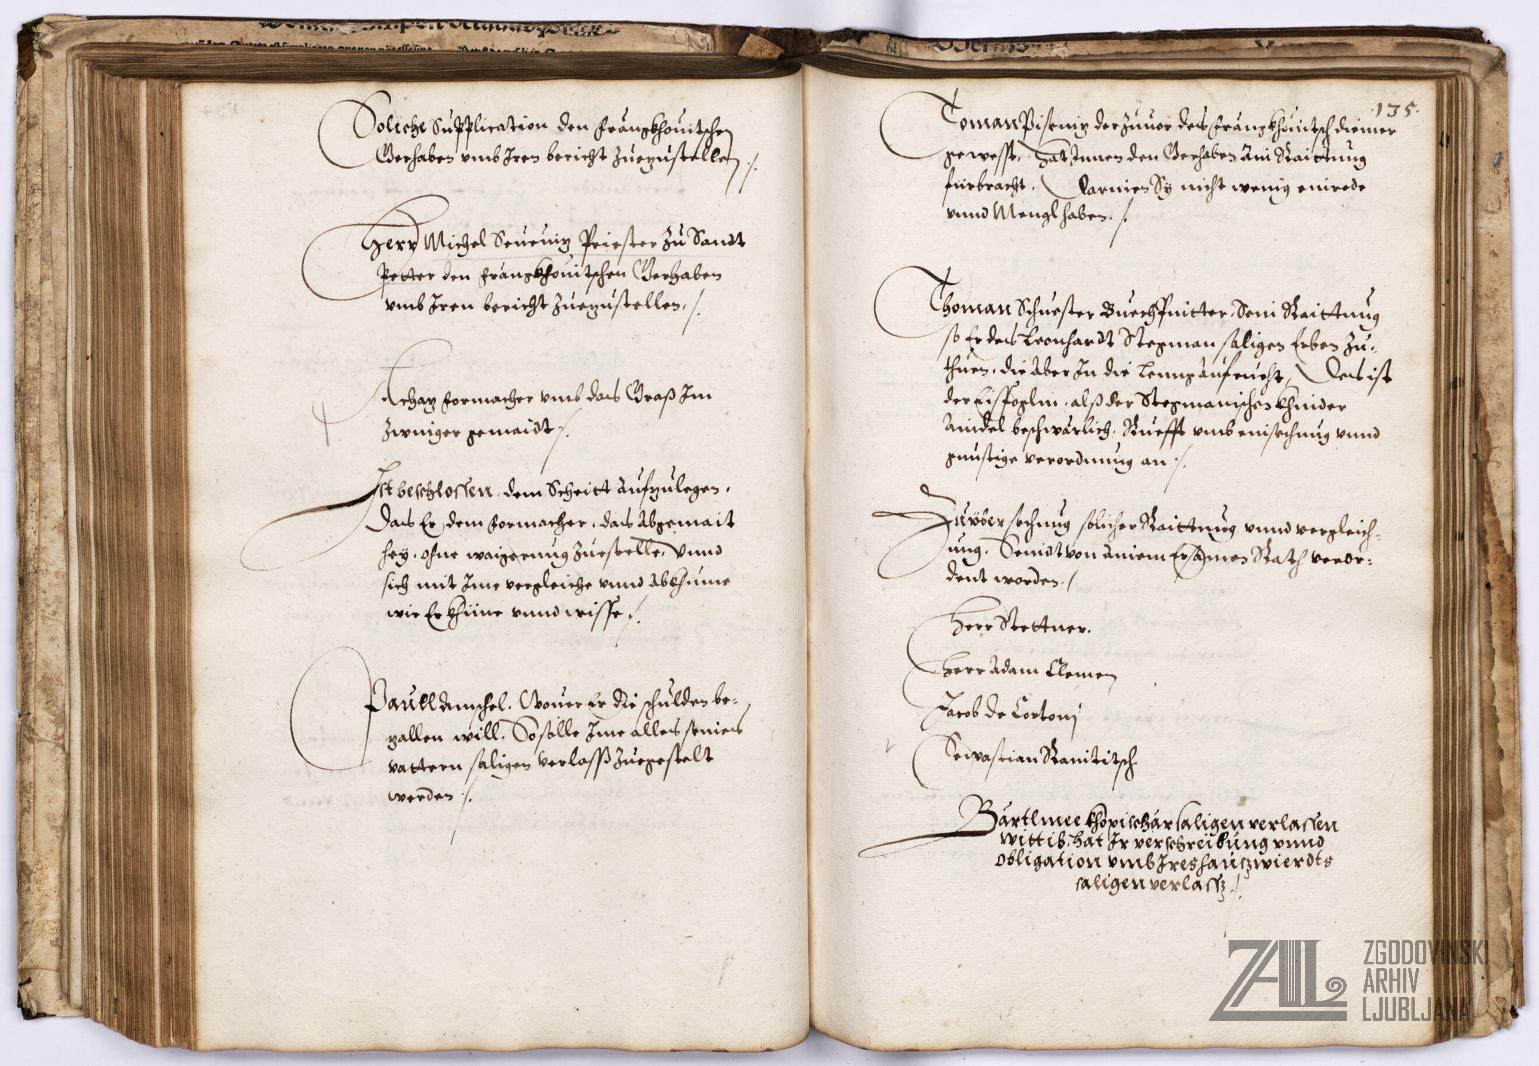 Soliche Supplication den Frangkhouitschen
Gerhaben vmb Iren bericht zuezustellen ./.
Herr Michel Seuenig Priester zu Sandt
Petter den Frangkhouitschen Gerhaben
vmb Iren bericht zuezustellen. /.
Achaz Formacher vmb das Graß Im
Zwinger gemaidt /.
Ist beschlossen, dem Scheitt aufzulegen,
Das Er, dem Formacher, das Abgemait
hey, ohne waigerung zuestelle, Vnnd
sich mit Ime vergleiche vnnd Abkhume
wie Er khüne vnnd wisse ./.
Paull Damschel. Wouer Er die schulden be-
zallen will, So solle Ime alles seines
vattern saligen verlass zuegestelt
werden ./.
.135.
Toman Pisenig der zuuor des Frangkhouitsch diener
gewesst, hat Innen den Gerhaben Ain Raittung
fürbracht. Darinen Sy nicht wenig einrede
vnnd Mengl haben. /.
Thoman Schuester Buechfuitter, Sein Raittung
so Er des Leonhardt Stegman saligen Erben zu-
thuen, die Aber In die Lenng Aufeucht, Des ist
der Eissoglin, alß der Stegmanischen Khinder
Aindel beschwärlich. Ruefft vmb einsechung vnnd
gunstige verordnung an ./.
Zu übersechung solicher Raittung vnnd vergleich-
ung. Seindt von Ainem Ersamen Rath veror-
dent worden. /
Herr Stettner.
Herr Adam Clemen
Jacob de Cortonj
Sewastian Ranititsch.
Bartlmee Khopischar saligen verlassen
wittib, hat Ir verschreibung vnnd
obligation vmb Ires hauszwierdts
saligen verlassz ./.
ZAL
ZGODOVINSKI
ARHIV
LJUBLJANA